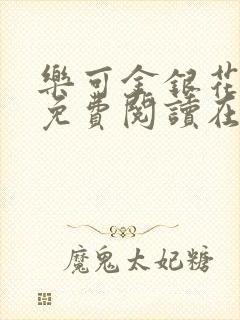 樂可金銀花
免費閱讀在
魔鬼太妃糖